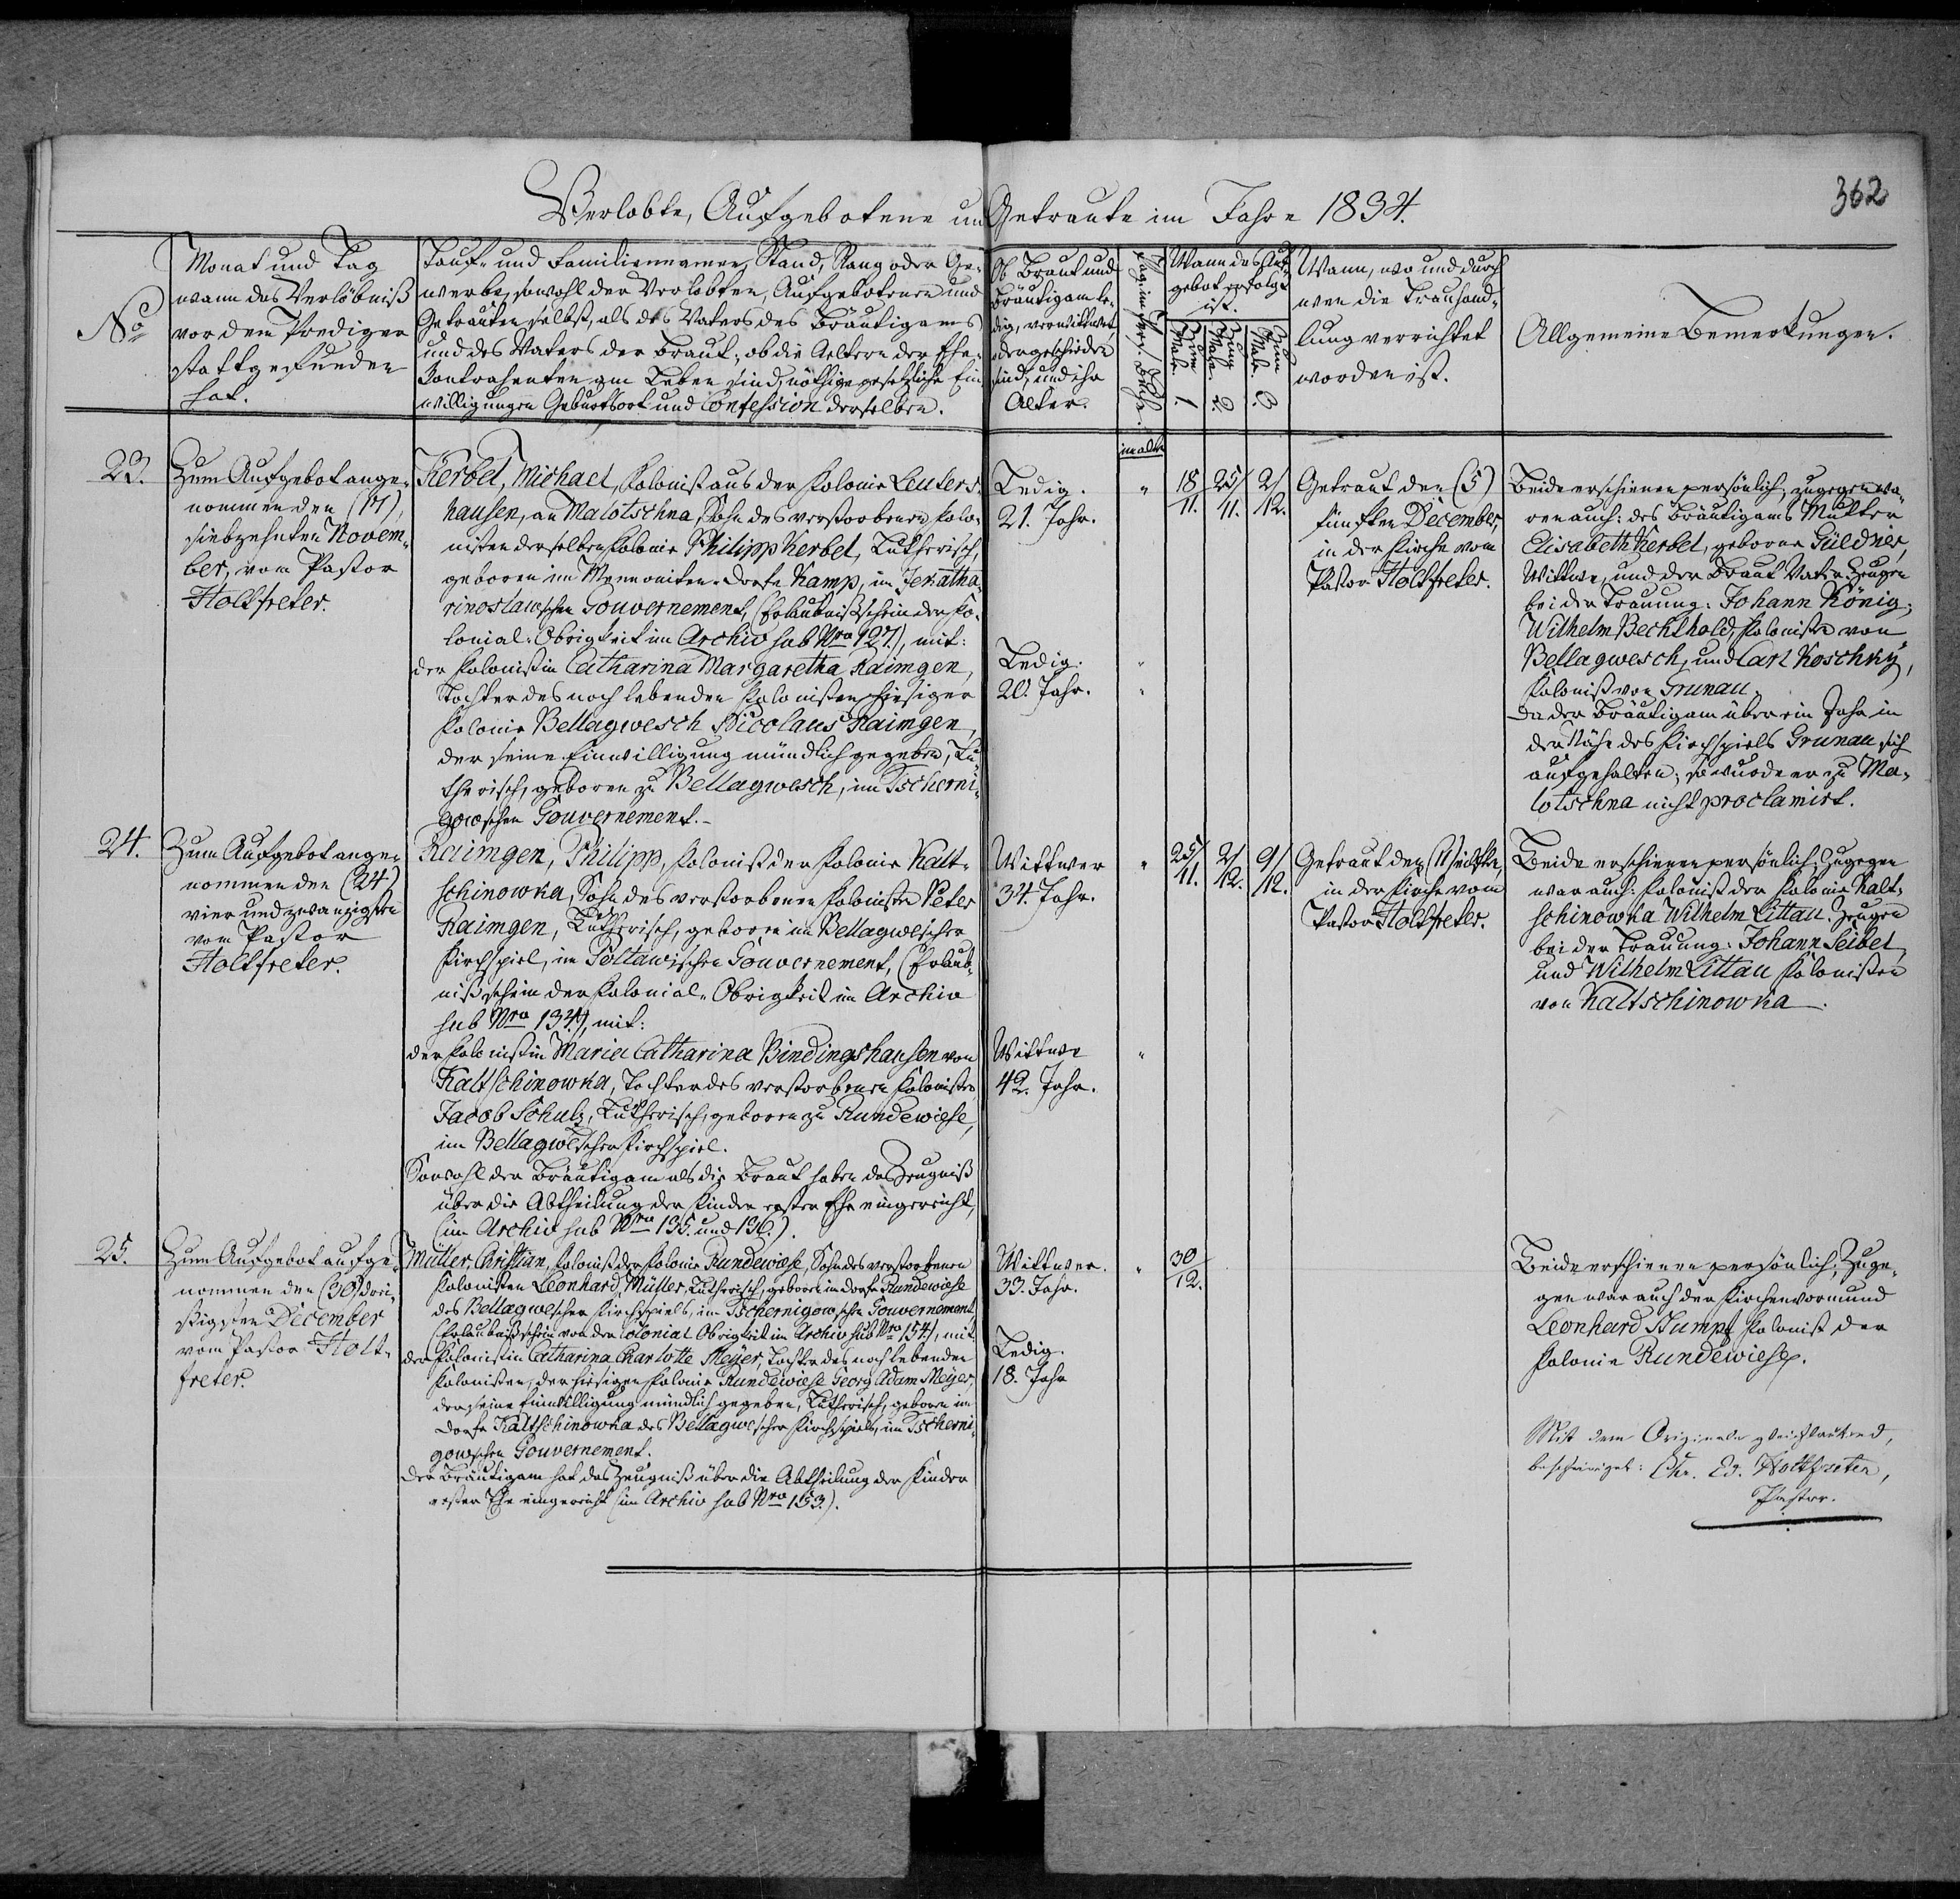 362
Verlobte, Aufgebotene und Getraute im Jahre 1834.
No
Monat und Tag
wann das Verlöbniß
vor dem Prediger
stattgefunden
hat.
Tauf- und Familiennamen, Stand, Rang oder Ge-
werbe, sowohl der Verlobten, Aufgebotenen und
Getrauten selbst, als des Vaters des Bräutigams
und des Vaters der Braut; ob die Aeltern der Ehe-
Contrahenten am Leben sind, nöthige gesetzliche Ein-
willigungen Geburtsort und Confession derselben.
Ob Braut und
Bräutigam le-
dig, verwittwet,
oder geschieden
sind, und ihr
Alter.
Wann das Auf-
gebot erfolgt
ist.
Zum 1. Male.
Zum 2. Male.
Zum 3. Male.
Wann, wo und durch
wen die Trauhand-
lung verrichtet
worden ist.
Allgemeine Bemerkungen.
23.
Zum Aufgebot ange-
nommen den (17)
siebzehnten Novem-
ber, vom Pastor
Holtfreter.
Kerbel, Michael, Kolonist aus der Kolonie Leuters-
hausen, an Malotschna, Sohn des verstorbenen Kolo-
nisten derselben Kolonie Philipp Kerbel, Lutherisch,
geboren im Mennoniten-Dorfe Kamp, im Jekatha-
rinoslawschen Gouvernement, (Erlaubnißschein der Ko-
lonial-Obrigkeit im Archiv sub Nro 127.), mit:
der Kolonistin Catharina Margaretha Raimgen,
Tochter des noch lebenden Kolonisten hiesiger
Kolonie Bellagwesch Nicolaus Raimgen,
der seine Einwilligung mündlich gegeben, Lu-
therisch, geboren zu Bellagwesch, im Tscherni-
gowschen Gouvernement.
Ledig.
21. Jahr.
Ledig.
20. Jahr.
18/11. 25/11. 2/12.
Getraut den (5)
fünften December,
in der Kirche vom
Pastor Holtfreter.
Beide erschienen persönlich, zugegen wa-
ren auch: des Bräutigams Mutter
Elisabeth Kerbel, geborne Güldner,
Wittwe, und der Braut Vater. Zeugen
bei der Trauung: Johann König,
Wilhelm Bechthold, Kolonisten von
Bellagwesch, und Carl Koschky,
Kolonist von Grunau.
Da der Bräutigam über ein Jahr in
der Nähe des Kirchspiels Grunau sich
aufgehalten; so wurde er zu Ma-
lotschna nicht proclamirt.
24.
Zum Aufgebot ange-
nommen den (24)
vier und zwanzigsten
vom Pastor
Holtfreter.
Raimgen, Philipp, Kolonist der Kolonie Kalt-
schinowka, Sohn des verstorbenen Kolonisten Peter
Raimgen, Lutherisch, geboren im Bellagweschen
Kirchspiel, im Poltawischen Gouvernement, (Erlaub-
nißschein der Kolonial-Obrigkeit im Archiv
sub Nro 134.), mit:
der Kolonistin Maria Catharina Bindingshausen von
Kaltschinowka, Tochter des verstorbenen Kolonisten
Jacob Schulz, Lutherisch, geboren zu Rundewiese,
im Bellagweschen Kirchspiel.
Sowohl der Bräutigam als die Braut haben das Zeugniß
über die Abtheilung der Kinder erster Ehe eingereicht,
(im Archiv sub Nro 135. und 136.)
Wittwer
34. Jahr.
Wittwe
42. Jahr.
25/11. 2/12. 9/12.
Getraut den
in der Kirche vom
Pastor Holtfreter.
Beide erschienen persönlich. Zugegen
war auch: Kolonist der Kolonie Kalt-
schinowka Wilhelm Littau. Zeugen
bei der Trauung: Johann Seibel,
und Wilhelm Littau Kolonisten
von Kaltschinowka.
25.
Zum Aufgebot aufge-
nommen den (30) drei-
ßigsten December
vom Pastor Holt-
freter.
Müller, Christian, Kolonist der Kolonie Rundewiese, Sohn des verstorbenen
Kolonisten Leonhard Müller, Lutherisch, geboren im Dorfe Rundewiese
des Bellagweschen Kirchspiels, im Tschernigowschen Gouvernement
(Erlaubnißschein von der Colonial Obrigkeit im Archiv sub Nro 154.), mit
der Kolonistin Catharina Charlotte Meyer, Tochter des noch lebenden
Kolonisten, der hiesigen Kolonie Rundewiese Georg Adam Meyer,
der seine Einwilligung mündlich gegeben, Lutherisch, geboren im
Dorfe Kaltschinowka des Bellagweschen Kirchspiels, im Tscherni-
gowschen Gouvernement.
Der Bräutigam hat das Zeugniß über die Abtheilung der Kinder
erster Ehe eingereicht (im Archiv sub Nro 153.).
Wittwer.
33. Jahr.
Ledig.
18. Jahr
30/12.
Beide erschienen persönlich, Zuge-
gen war auch der Kirchenvormund
Leonhard Stumpf Kolonist der
Kolonie Rundewiese.
Mit dem Originale gleichlautend,
bescheiniget: Chr. Ed. Holtfreter,
Pastor.